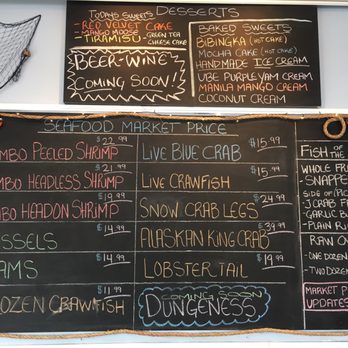 DESSERTS
TODAYS SWEETS
- RED VELVET CAKE
- MANGO MOOSE
- GREEN TEA
- TIRAMISU
CHEESE CAKE
BEER-WINE
COMING SOON!
BAKED SWEETS
BIBINGKA (HOT CAKE)
MOCHA CAKE (HOT CAKE)
HANDMADE ICE CREAM
UBE PURPLE YAM CREAM
MANILA MANGO CREAM
COCONUT CREAM
SEAFOOD MARKET PRICE
MBO PEELED SHRIMP $22.99
MBO HEADLESS SHRIMP 21.99
MBO HEADON SHRIMP $19.99
SSELS $14.99
AMS $14.99
OZEN CRAWFISH $11.99
LIVE BLUE CRAB $15.99
LIVE CRAWFISH $15.99
SNOW CRAB LEGS $24.99
ALASKAN KING CRAB
LOBSTER TAIL $19.99
COMING SOON
DUNGENESS
FISH OF THE
WHOLE FR
- SNAPPE
SIDE OF (PIC
CRAB F
GARLIC B
- PLAIN RI
RAW O
- ONE D
- TWO DOZEN
MARKET P
UPDATES